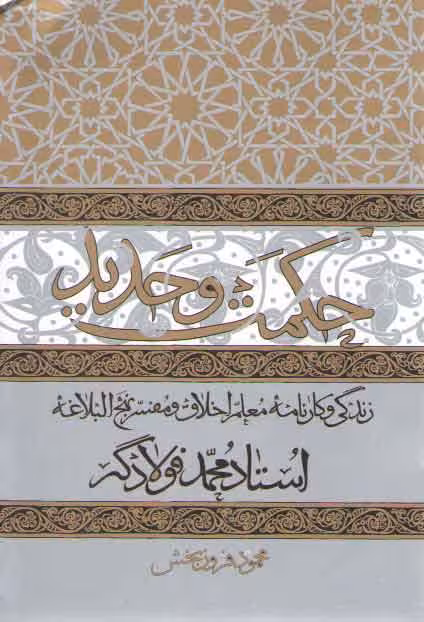 حکمت و حدید
زندگی و کارنامهٔ معلم اخلاق و مفسّر نهج البلاغهٔ
اُستاد مُحمّد فولادگر
محمود فروزبخش